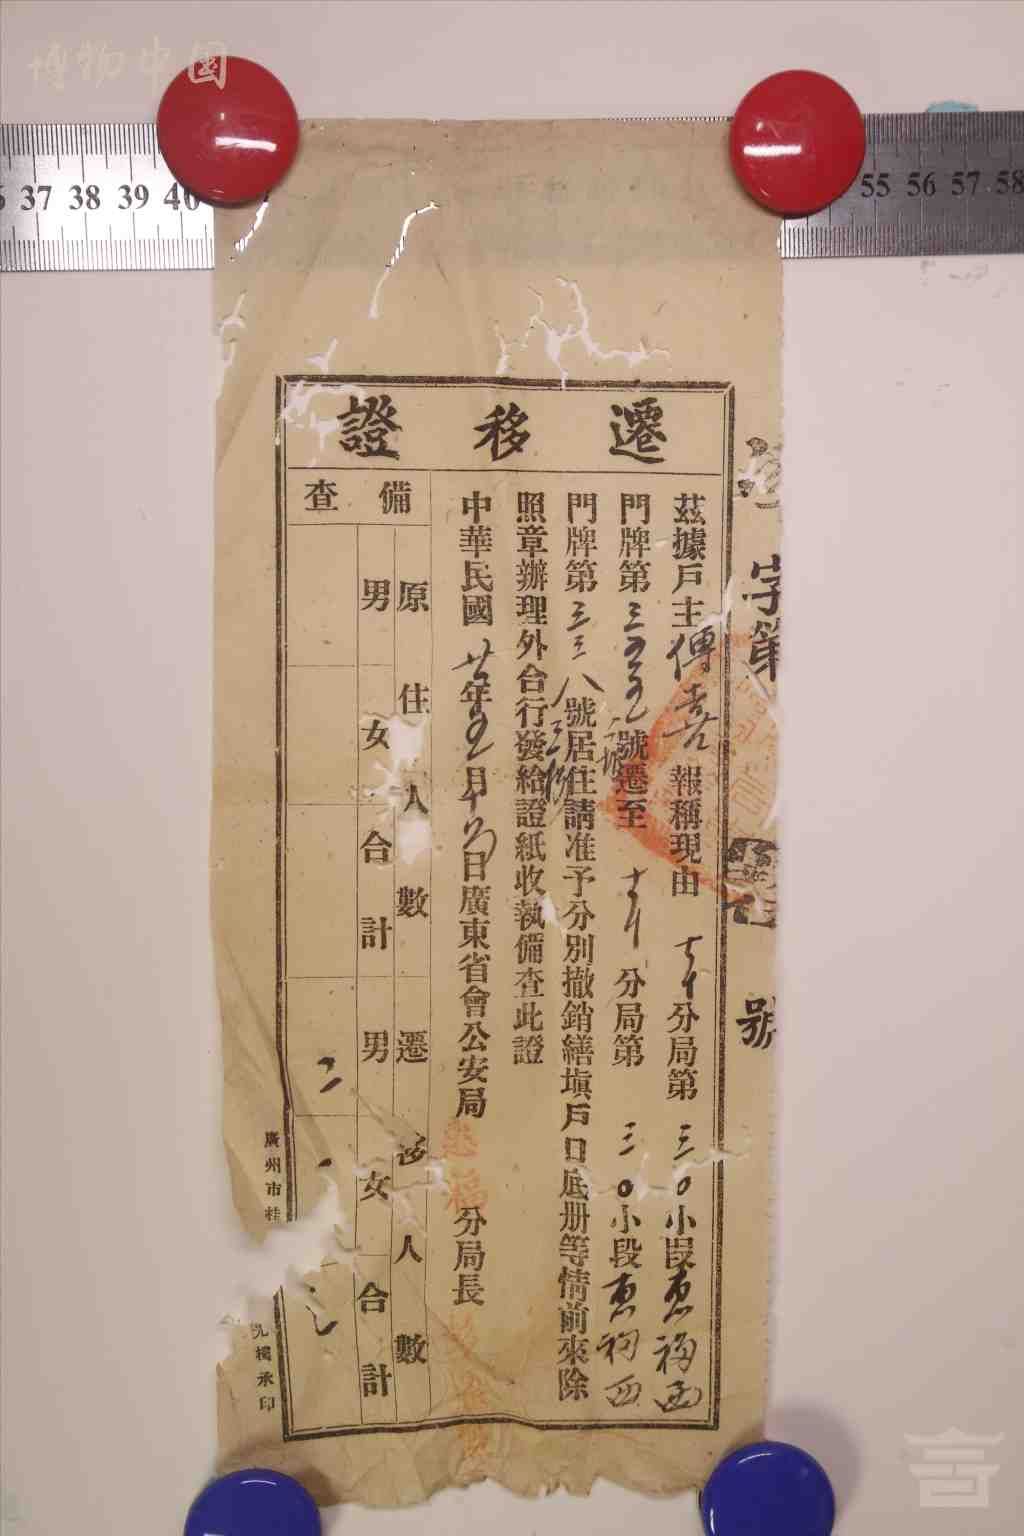 博物中国
37 38 39 40
55 56 57 58
遷移證
字第 號
茲據戶主傅喜報稱現由 分局第三〇小段惠福西
門牌第三五五號遷至 分局第三〇小段惠福西
門牌第三三八號居住請准予分別撤銷繕塡戶口底册等情前來除
照章辦理外合行發給證紙收執備查此證
中華民國廿年五月 日廣東省會公安局惠福分局長
備查
原住人數 遷移人數
男 女 合計 男 女 合計
二
廣州市桂
承印